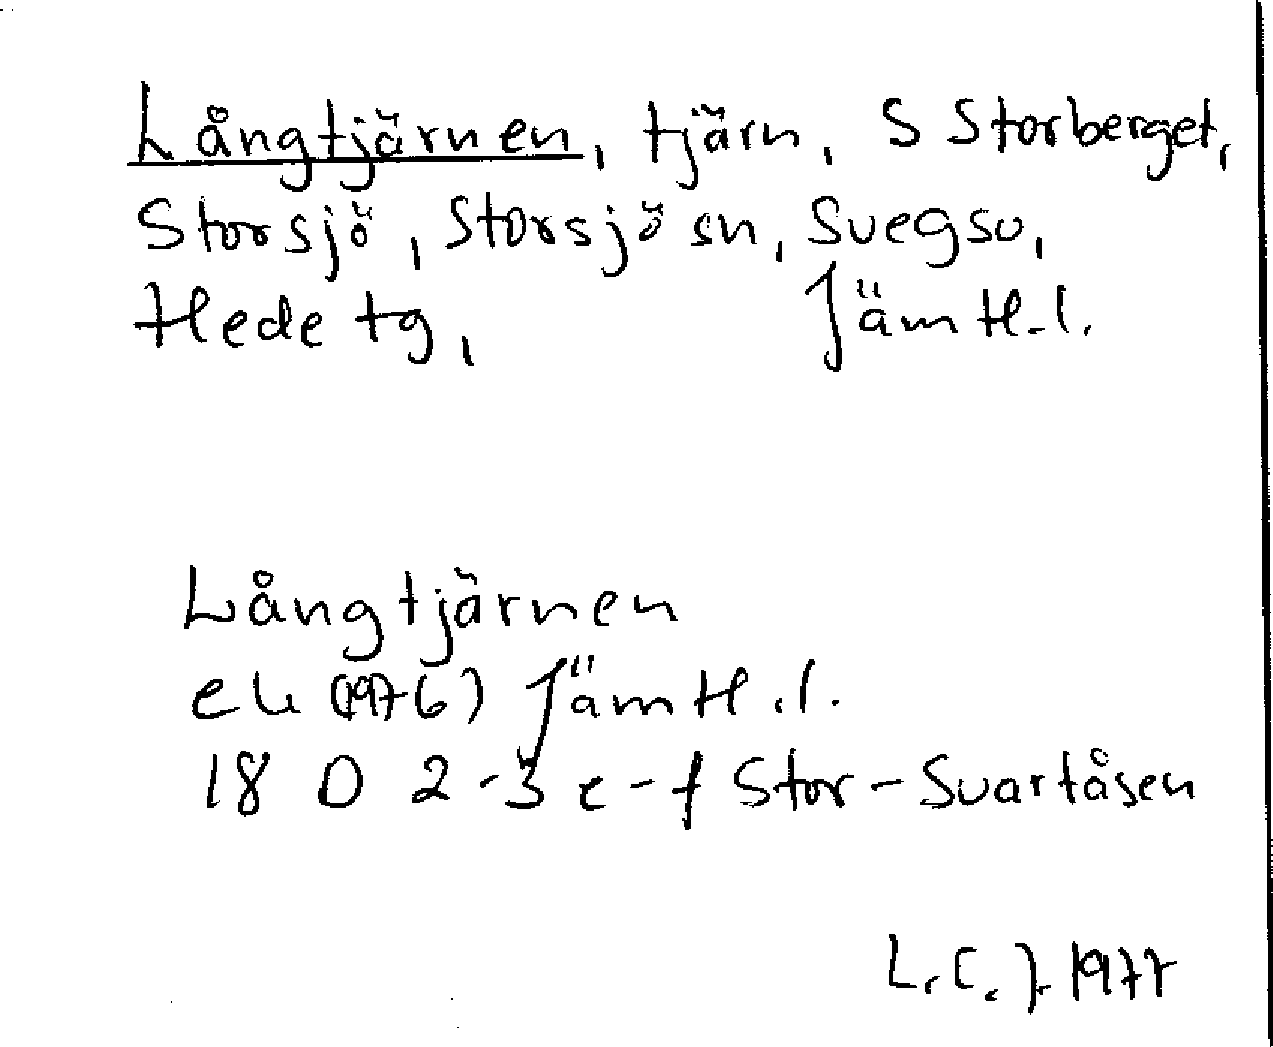 Långtjärnen, tjärn, S Storberget,
Storsjö, Storsjö sn, Svegs o,
Hede tg, Jämtl. l.
Långtjärnen
ek (1976) Jämtl. l.
18 D 2-3 e-f Stor-Svartåsen
L. C. J. 1977